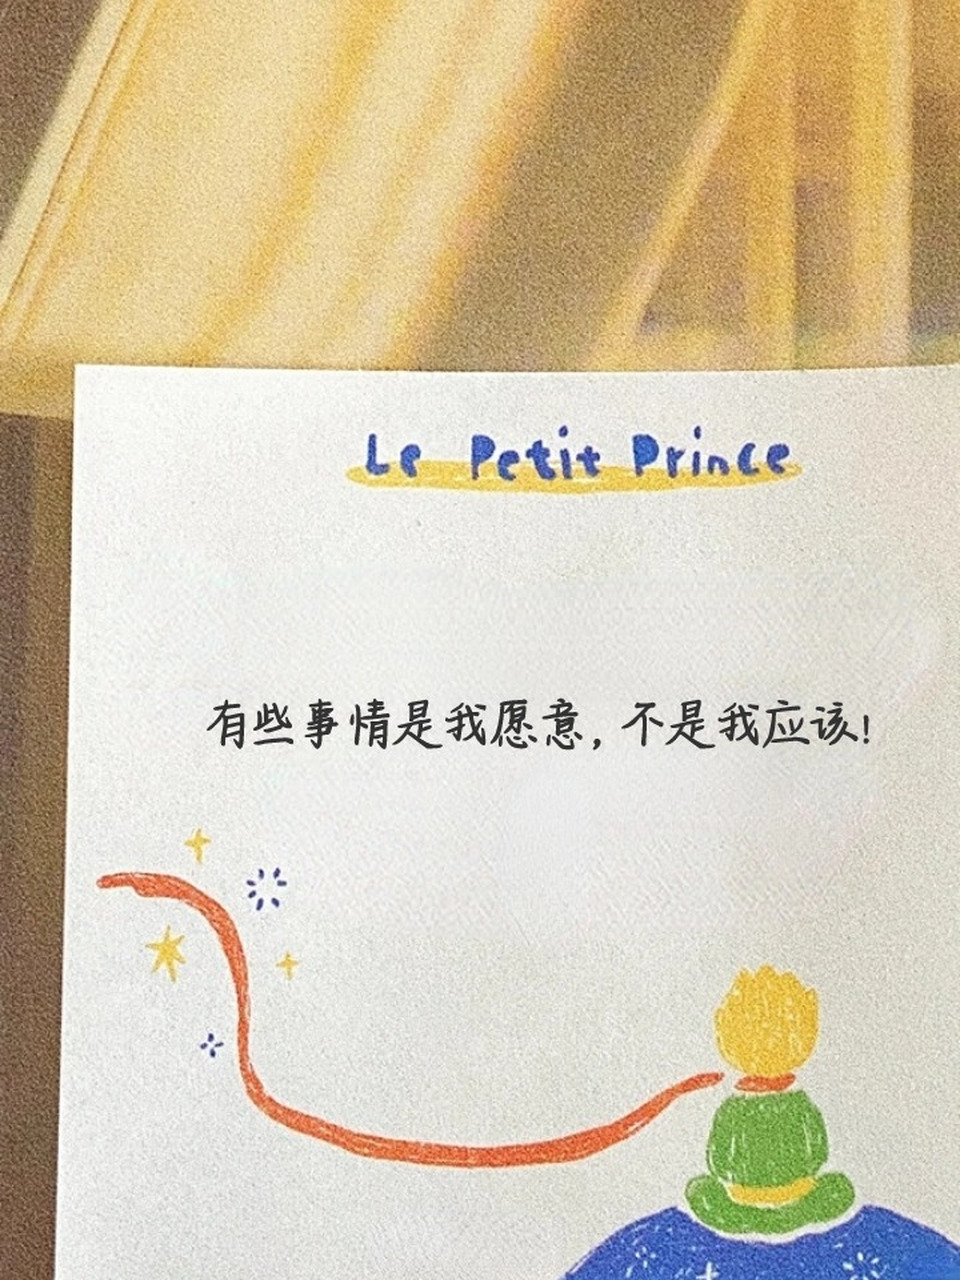 Le Petit Prince
有些事情是我愿意，不是我应该!